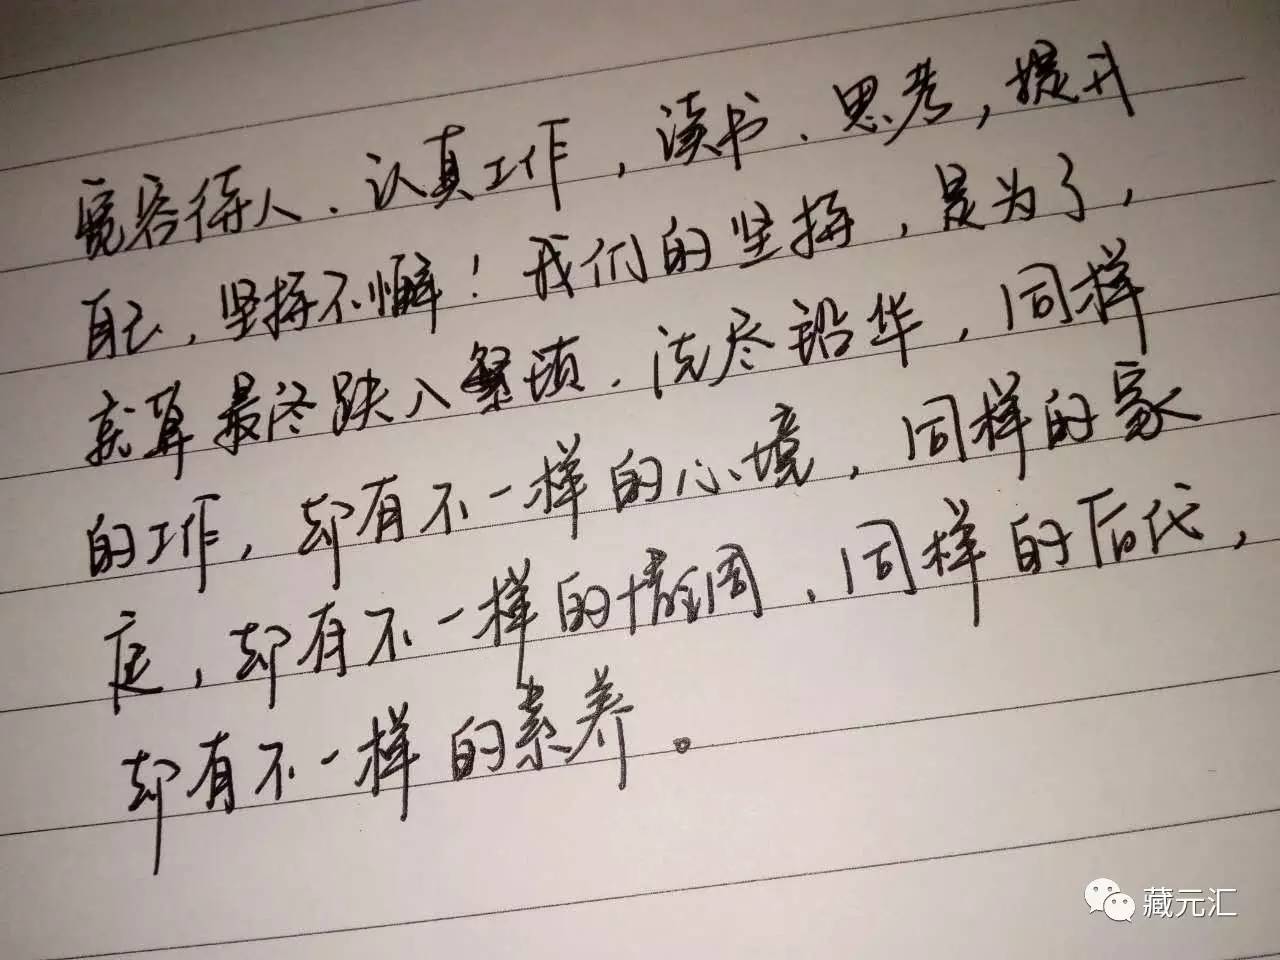 宽容待人、认真工作，读书、思考，提升
自己，坚持不懈！我们的坚持，是为了，
就算最终跌入繁琐、洗尽铅华，同样
的工作，却有不一样的心境，同样的家
庭，却有不一样的情调、同样的后代，
却有不一样的素养。
藏元汇